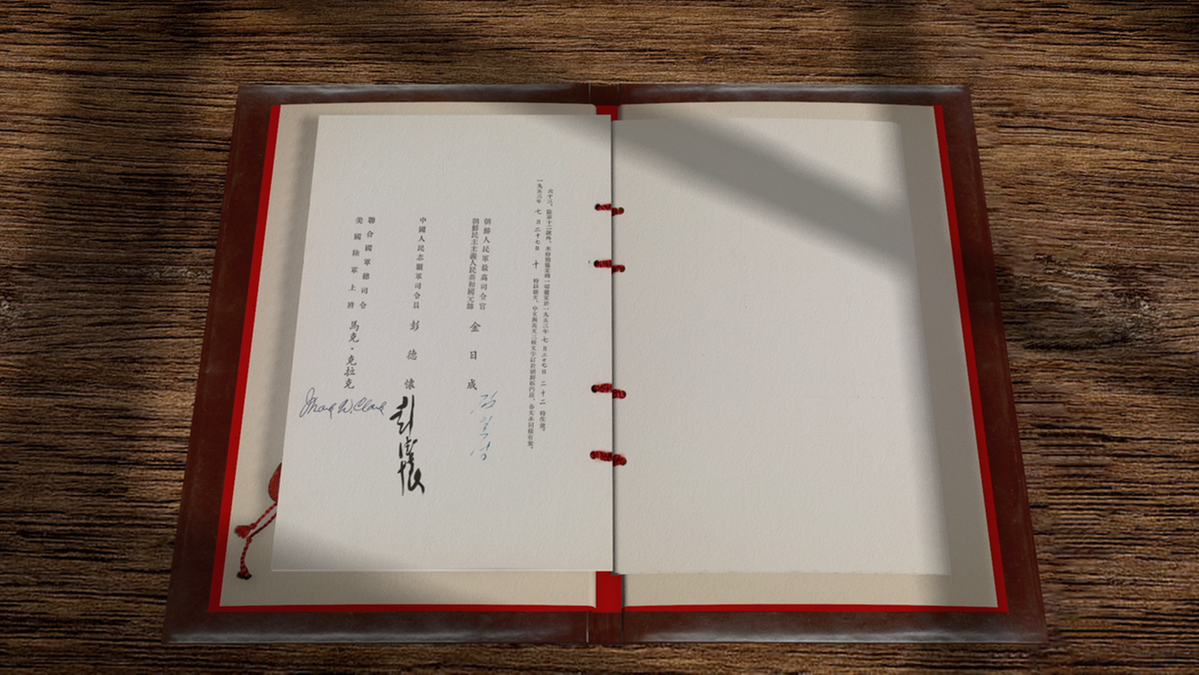 六十三、除第十二款外，本停戰協定的一切規定於一九五三年七月二十七日二十二時生效。
一九五三年七月二十七日十時以朝文、中文與英文三種文字訂於朝鮮板門店，各文本同樣有效。
朝鮮人民軍最高司令官
朝鮮民主主義人民共和國元帥 金日成
김일성
中國人民志願軍司令員 彭德懷
彭德懷
聯合國軍總司令
美國陸軍上將 馬克·克拉克
Mark W. Clark